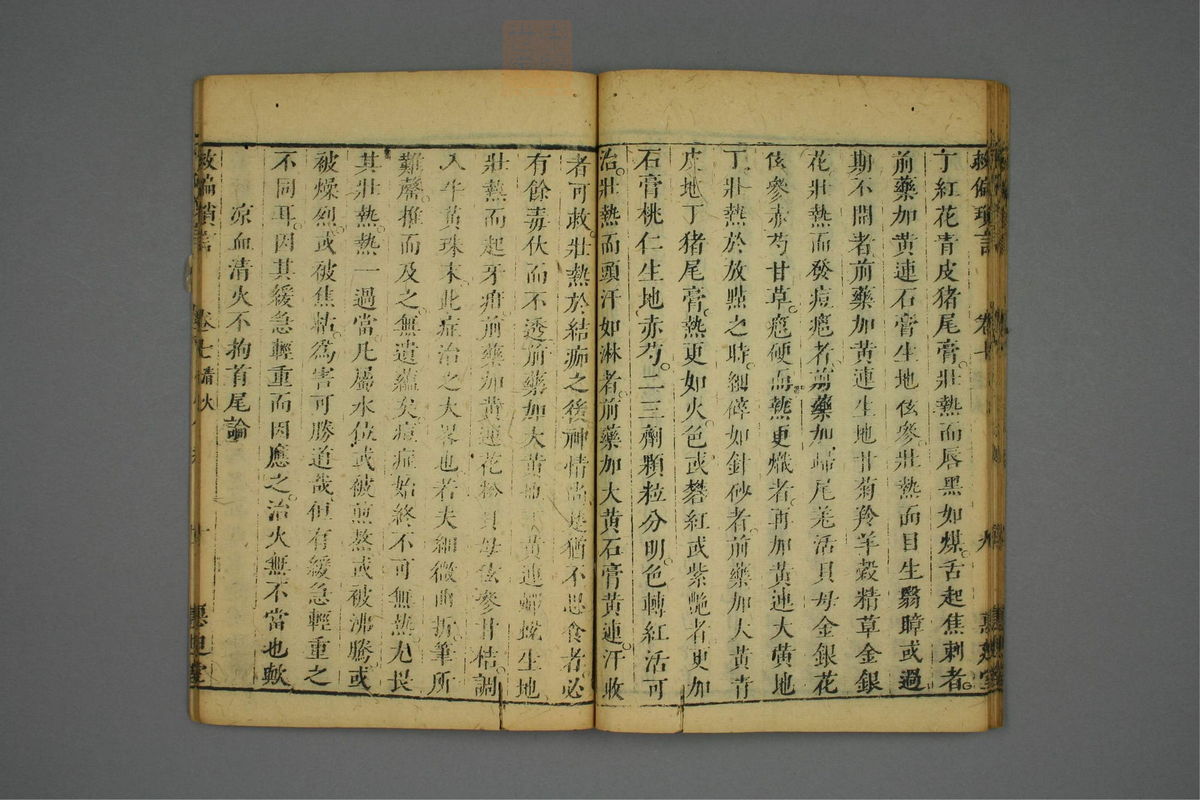 救偏瑣言 卷七 九 惠迪堂
丁紅花青皮猪尾膏壯熱而唇黑如煤舌起焦刺者
前藥加黃連石膏生地伭參壯熱面目生翳瞕或過
期不開者前藥加黃連生地甘菊羚羊穀精草金銀
花壯熱而發痘癍者前藥加歸尾羌活貝母金銀花
伭參赤芍甘草癍硬而熱更熾者再加黃連大黃地
丁壯熱於放點之時細碎如針砂者前藥加大黃青
皮地丁猪尾膏熱更如火色或礬紅或紫艶者更加
石膏桃仁生地赤芍二三劑顆粒分明色轉紅活可
治壯熱而頭汗如淋者前藥加大黃石膏黃連汗收
者可救壯熱於結痂之後神情尚是猶不思食者必
有餘毒伏而不透前藥加大黃地丁黃連蟬蛻生地
壯熱而起牙疳前藥加黃連花粉貝母伭參甘桔調
入牛黃珠末此症治之大畧也若夫細微曲折筆所
難罄推而及之無遺蘊矣痘症始終不可無熱尤畏
其壯熱熱一過當凡屬水位或被煎熬或被沸騰或
被燥烈或被焦枯為害可勝道哉但有緩急輕重之
不同耳因其緩急輕重而因應之治火無不當也歟
凉血清火不拘首尾論
救偏瑣言 卷七 十 惠迪堂